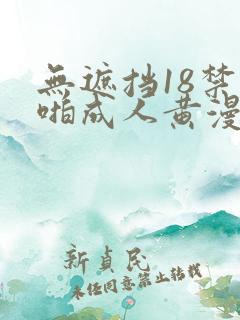 無遮挡18禁
啪成人黄漫
新貞民
未经同意禁止转载